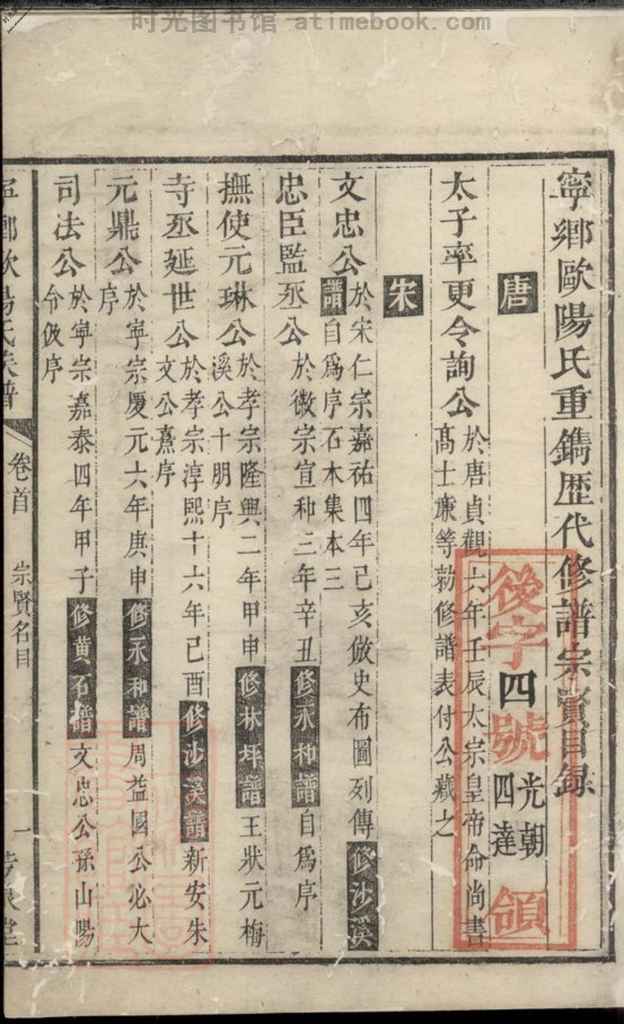 时光图书馆 - atimebook.com
寧鄉歐陽氏重鐫歷代修譜宗賢目録
唐
太子率更令詢公於唐貞觀六年壬辰太宗皇帝命尚書
高士廉等勅修譜表付公藏之
後字四號
光朝
四達
領
宋
文忠公於宋仁宗嘉祐四年己亥倣史布圖列傳修沙溪
譜自爲序石木集本三
忠臣監丞公於徽宗宣和三年辛丑修永和譜自爲序
撫使元琳公於孝宗隆興二年甲申修林坪譜王狀元梅
溪公十朋序
寺丞延世公於孝宗淳熙十六年己酉修沙溪譜新安朱
文公熹序
元鼎公於寧宗慶元六年庚申修永和譜周益國公必大
序
司法公於寧宗嘉泰四年甲子修黃石譜文忠公孫山陽
令伋序
寧鄉歐陽氏族譜
卷首
宗賢名目
一